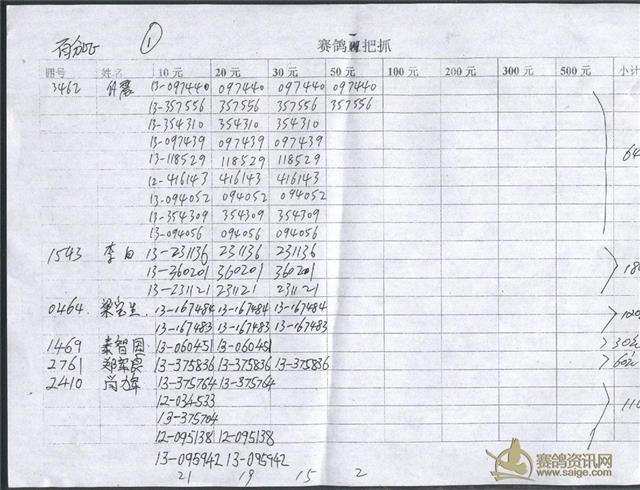 百分之 ① 赛鸽 把抓
棚号 姓名 10 元 20 元 30 元 50 元 100 元 200 元 300 元 500 元 小计
3462 13-097440 097440 097440 097440
13-357556 357556 357556 357556
13-354310 354310 354310
13-097439 097439 097439
13-118529 118529 118529
12-416143 416143 416143
13-094052 094052 094052
13-354309 354309 354309
13-094056 094056 094056
1543 李白 13-231136 231136 231136
13-360201 360201 360201
13-231121 231121 231121
0464 梁宝兰 13-167484 13-167484 13-167484
13-167483 13-167483 13-167483
1469 秦智国 13-060451 13-060451
2761 13-375836 13-375836 13-375836
2410 13-375764 13-375764
12-034533
13-375704
12-095138 12-095138
13-095942 13-095942
21 19 15 2
赛鸽资讯网
www.saige.com